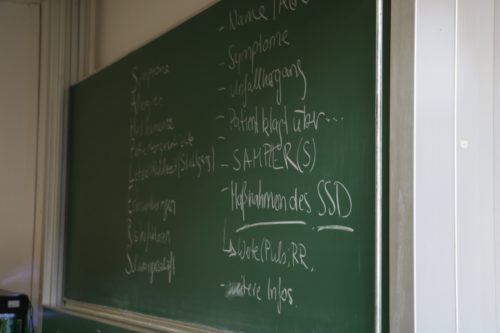 Symptome
Allergien
Medikamente
Patientengeschichte
Letzte Mahlzeit (Stuhlgang)
Erkrankungen
Risikofaktoren
Schwangerschaft
- Name / Alter
- Symptome
- Unfallhergang
- Patient klagt über...
- SAMPLER(S)
- Maßnahmen des SSD
↳ Werte (Puls, RR,
- weitere Infos